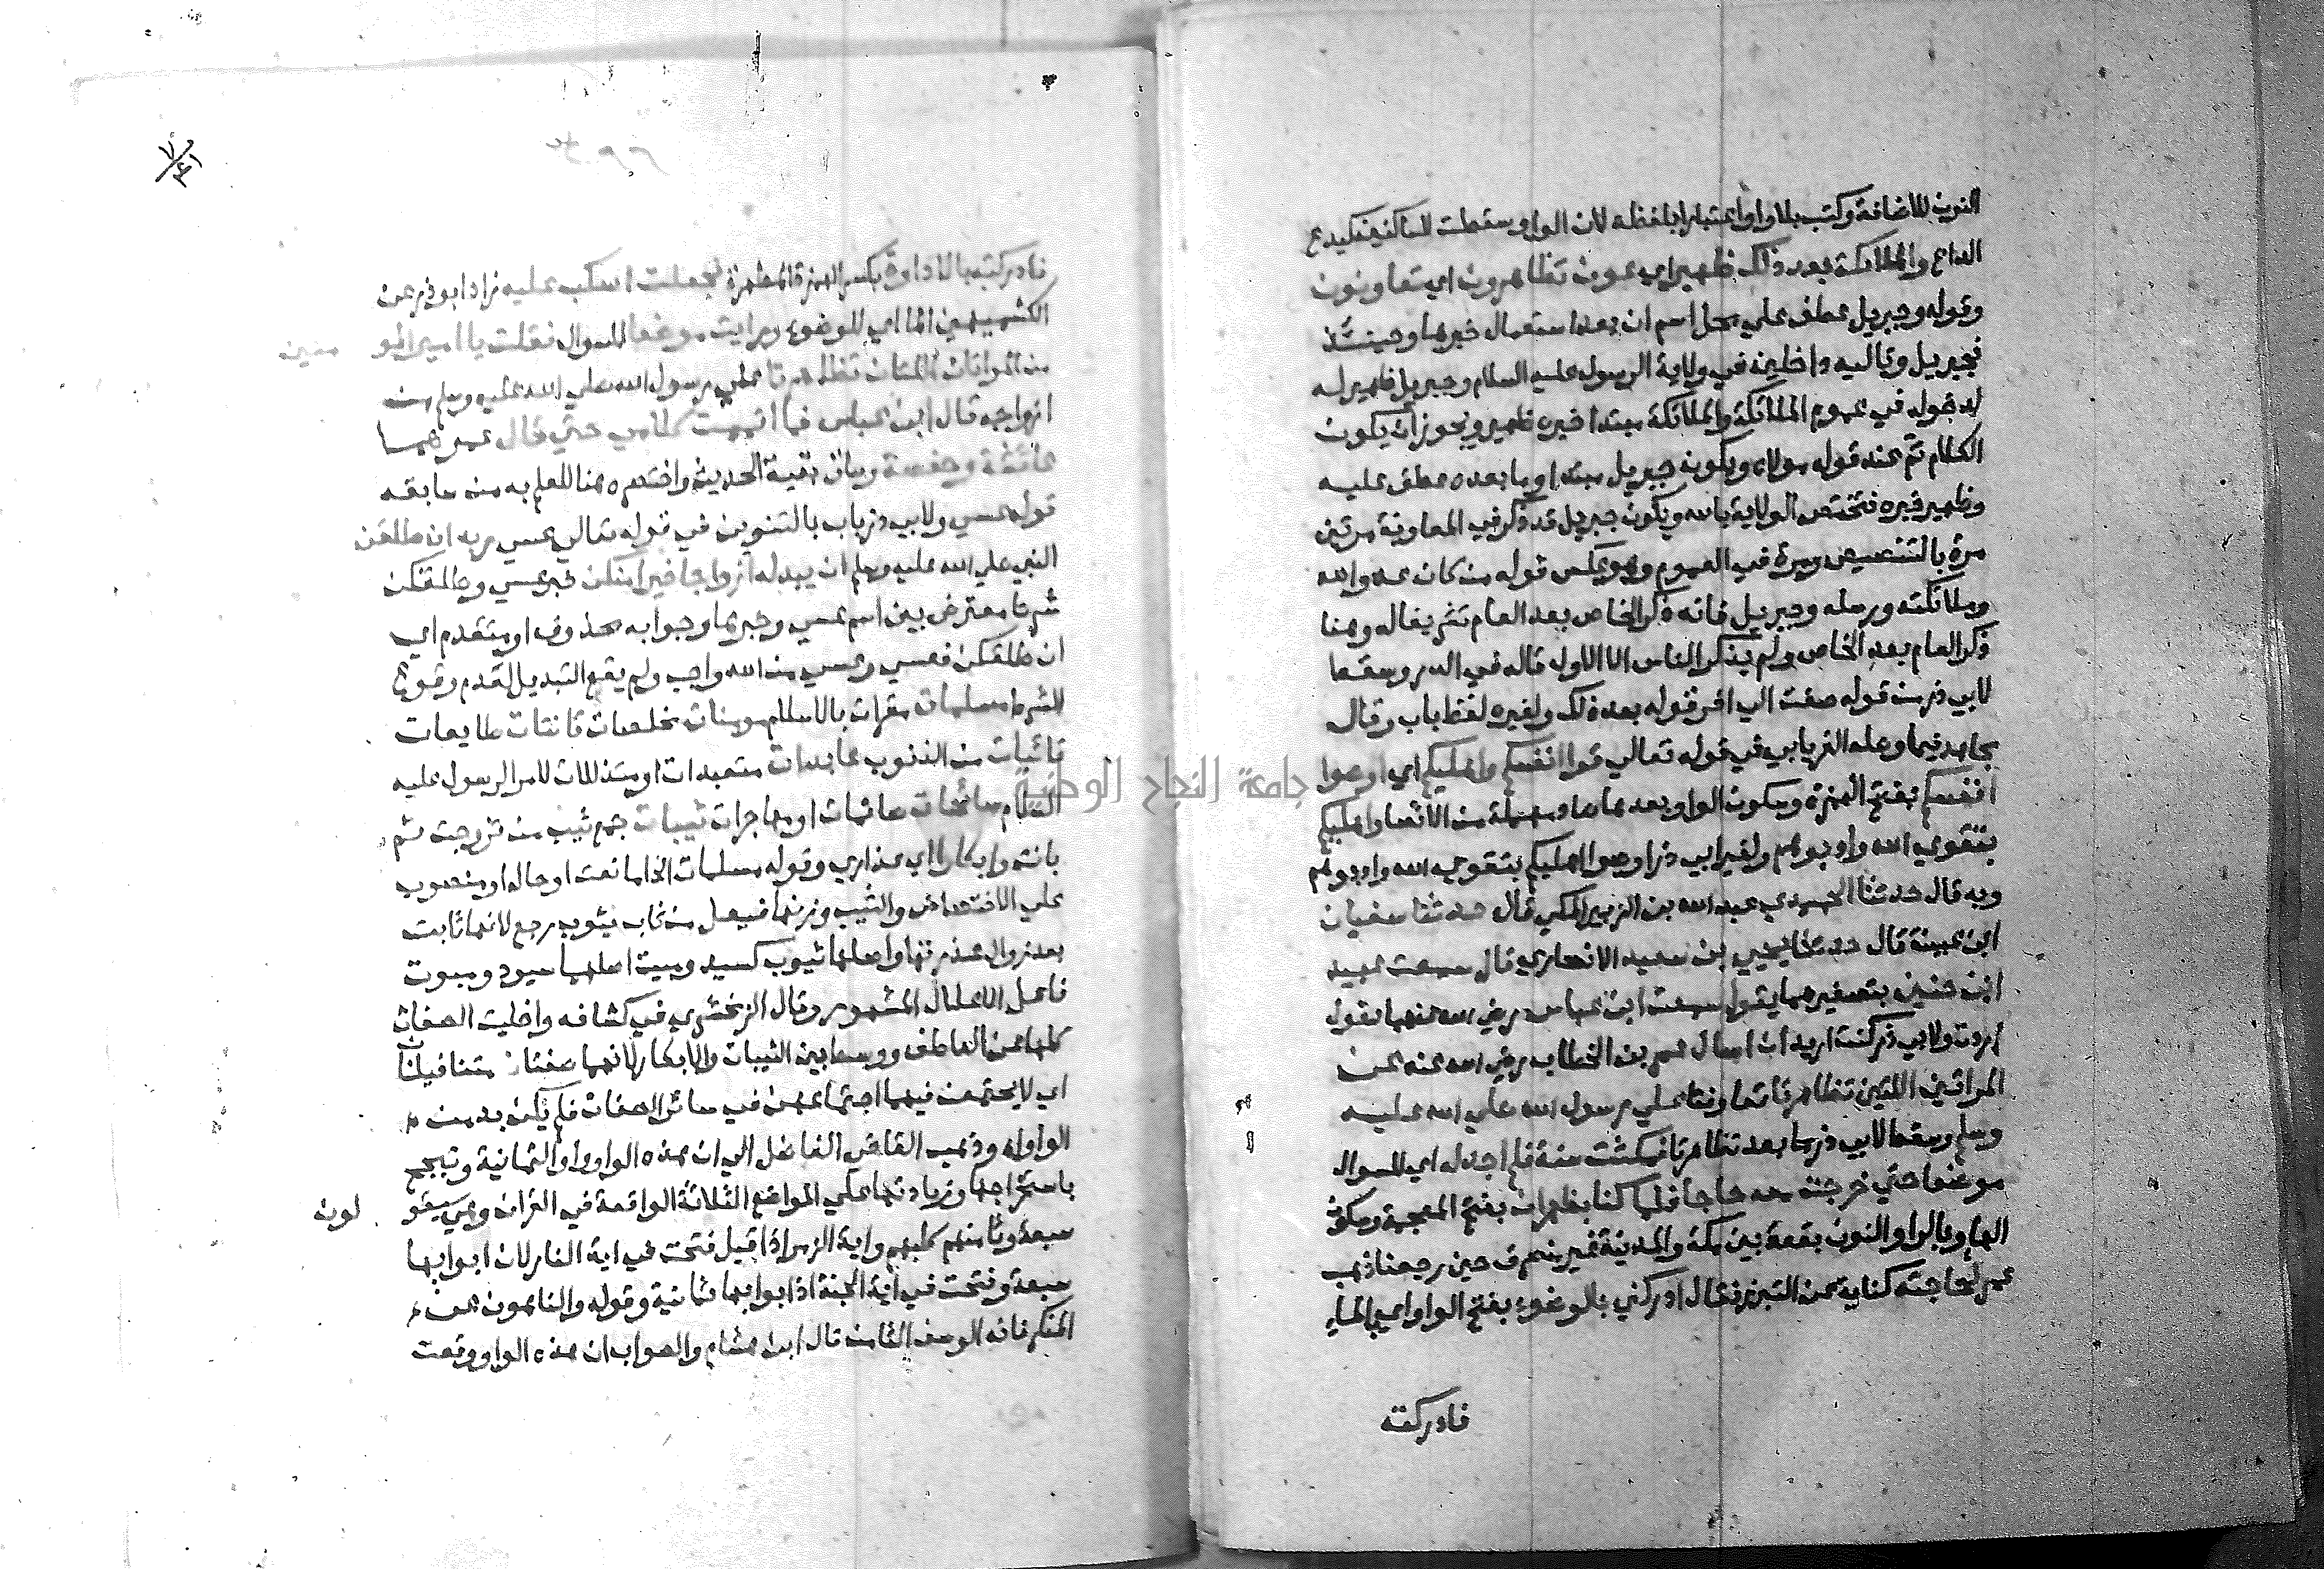 النون للاضافة وكتب بلا واو اعتبارا بلفظه لان الواو سقطت للساكنين كيدع
الداع والملائكة بعد ذلك ظهير اي عون تظاهرون اي تعاونون
وقوله وجبريل عطف علي محل اسم ان بعد استعمال خبرها وحينئذ
فجبريل وتاليه داخلين في ولاية الرسول عليه السلام وجبريل ظهير له
لدخوله في عموم الملائكة والملائكة مبتدا خبره ظهير ويجوز ان يكون
الكلام تم عند قوله مولاه ويكون جبريل مبتدا وما بعده عطف عليه
وظهير خبره فتختص الولاية بالله ويكون جبريل قد ذكر في المعاونة مرتين
مرة بالتنصيص ومرة في العموم وهو عكس قوله من كان عدوا لله
وملائكته ورسله وجبريل فانه ذكر الخاص بعد العام تشريفا له وهنا
ذكر العام بعد الخاص ولم يذكر الناس الا الاول قاله في الدر وسقط
لابي ذر من قوله صغت الي اخر قوله بعد ذلك ولغيره لفظ باب وقال
مجاهد فيما وصله الفريابي في قوله تعالي قوا انفسكم واهليكم اي اوصوا
انفسكم بفتح الهمزة وسكون الواو بعدها صاد مهملة من الايصا واهليكم
بتقوي الله وادبوهم ولغير ابي ذر اوصوا اهليكم بتقوي الله وادبوهم
وبه قال حدثنا الحميدي عبد الله بن الزبير المكي قال حدثنا سفيان
ابن عيينة قال حدثنا يحيي بن سعيد الانصاري قال سمعت عبيد
ابن حنين بتصغيرهما يقول سمعت ابن عباس رضي الله عنهما يقول
اردت ولابي ذر كنت اريد ان اسال عمر بن الخطاب رضي الله عنه عن
المراتين اللتين تظاهرتا تعاونتا علي رسول الله صلي الله عليه
وسلم وسقط لابي ذر ما بعد تظاهرتا فمكثت سنة فلم اجد له اي للسوال
موضعا حتي خرجت معه حاجا فلما كنا بظهران بفتح المعجمة وسكون
الها وبالواو النون بقعة بين مكة والمدينة غير منصرف حين رجعنا ذهب
عمر لحاجته كناية عن التبرز فقال ادركني بالوضوء بفتح الواو اي بالماء
فادركته
فادركته بالاداوة بكسر الهمزة المطهرة فجعلت اسكب عليه زاد ابو ذر عن
الكشميهني الما اي للوضوء ورايت موضعا للسوال فقلت يا امير المو منين
من المراتان اللتان تظاهرتا علي رسول الله صلي الله عليه وسلم من
ازواجه قال ابن عباس فما اتممت كلامي حتي قال عمر هما
عائشة وحفصة وساق بقية الحديث واختصره هنا للعلم به من سابقه
قوله عسي ولابي ذر باب بالتنوين في قوله تعالي عسي ربه ان طلقكن
النبي صلي الله عليه وسلم ان يبدله ازواجا خيرا منكن خبر عسي وطلقكن
شرط معترض بين اسم عسي وخبرها وجوابه محذوف او متقدم اي
ان طلقكن فعسي وعسي من الله واجب ولم يقع التبديل لعدم وقوع
الشرط مسلمات مقرات بالاسلام مومنات مخلصات قانتات طايعات
تائبات من الذنوب عابدات متعبدات او متذللات لامر الرسول عليه
السلام سائحات صائمات او مهاجرات ثيبات جمع ثيب من تزوجت ثم
بانت وابكارا اي عذاري وقوله مسلمات الخ اما نعت او حال او منصوب
علي الاختصاص والثيب وزنها فيعل من ثاب يثوب رجع لانها ثابت
بعد زوال عذرتها واصلها ثيوب كسيد وميت اصلهما سيود وميوت
فاعل الاعلال المشهور وقال الزمخشري في كشافه واخليت الصفات
كلها عن العاطف ووسط بين الثيبات والابكار لانهما صفتان متنافيتان
اي لا يجتمعن فيهما اجتماعهن في سائر الصفات فلم يكن بد من
الواو اه وذهب القاضي الفاضل الي ان هذه الواو واو الثمانية وتبجح
باستخراجها وزيادتها علي المواضع الثلاثة الواقعة في القران وهي سيقو لون
سبعة وثامنهم كلبهم واية الزمر اذ قيل فتحت في اية النار لان ابوابها
سبعة وفتحت في اية الجنة اذ ابوابها ثمانية وقوله والناهون عن
المنكر فانه الوصف الثامن قال ابن هشام والصواب ان هذه الواو وقعت
جامعة النجاح الوطنية